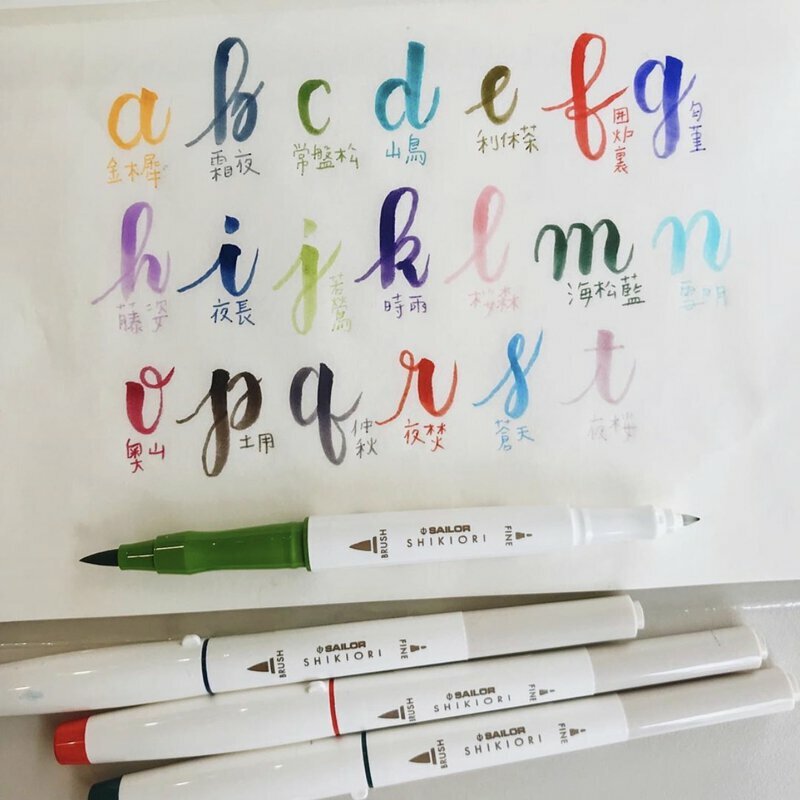 a b c d e f g
金木犀 霜夜 常盤松 山鳥 利休茶 囲炉裏 匂菫
h i j k l m n
藤姿 夜長 若鶯 時雨 桜森 海松藍 雪明
o p q r s t
奥山 土用 仲秋 夜焚 蒼天 夜桜
BRUSH SAILOR SHIKIORI FINE
BRUSH SAILOR SHIKIORI FINE
BRUSH SAILOR SHIKIORI FINE
BRUSH SAILOR SHIKIORI FINE